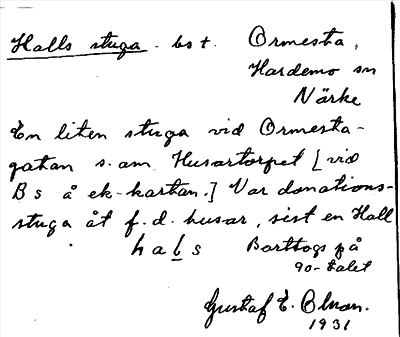 Halls stuga - bst. Ormesta,
Hardemo sn
Närke
En liten stuga vid Ormesta-
gatan s. om Husartorpet [vid
B s å ek-kartan.] Var donations-
stuga åt f.d. husar, sist en Hall
hals Borttogs på
90-talet
Gustaf E.
1931